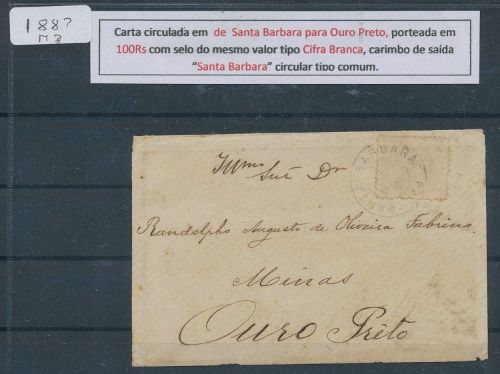 188?
M3
Carta circulada em de Santa Barbara para Ouro Preto, porteada em
100Rs com selo do mesmo valor tipo Cifra Branca, carimbo de saída
“Santa Barbara” circular tipo comum.
BARBARA
Illmo Snr Dr
Randolpho Augusto de Oliveira Fabrino
Minas
Ouro Prêto